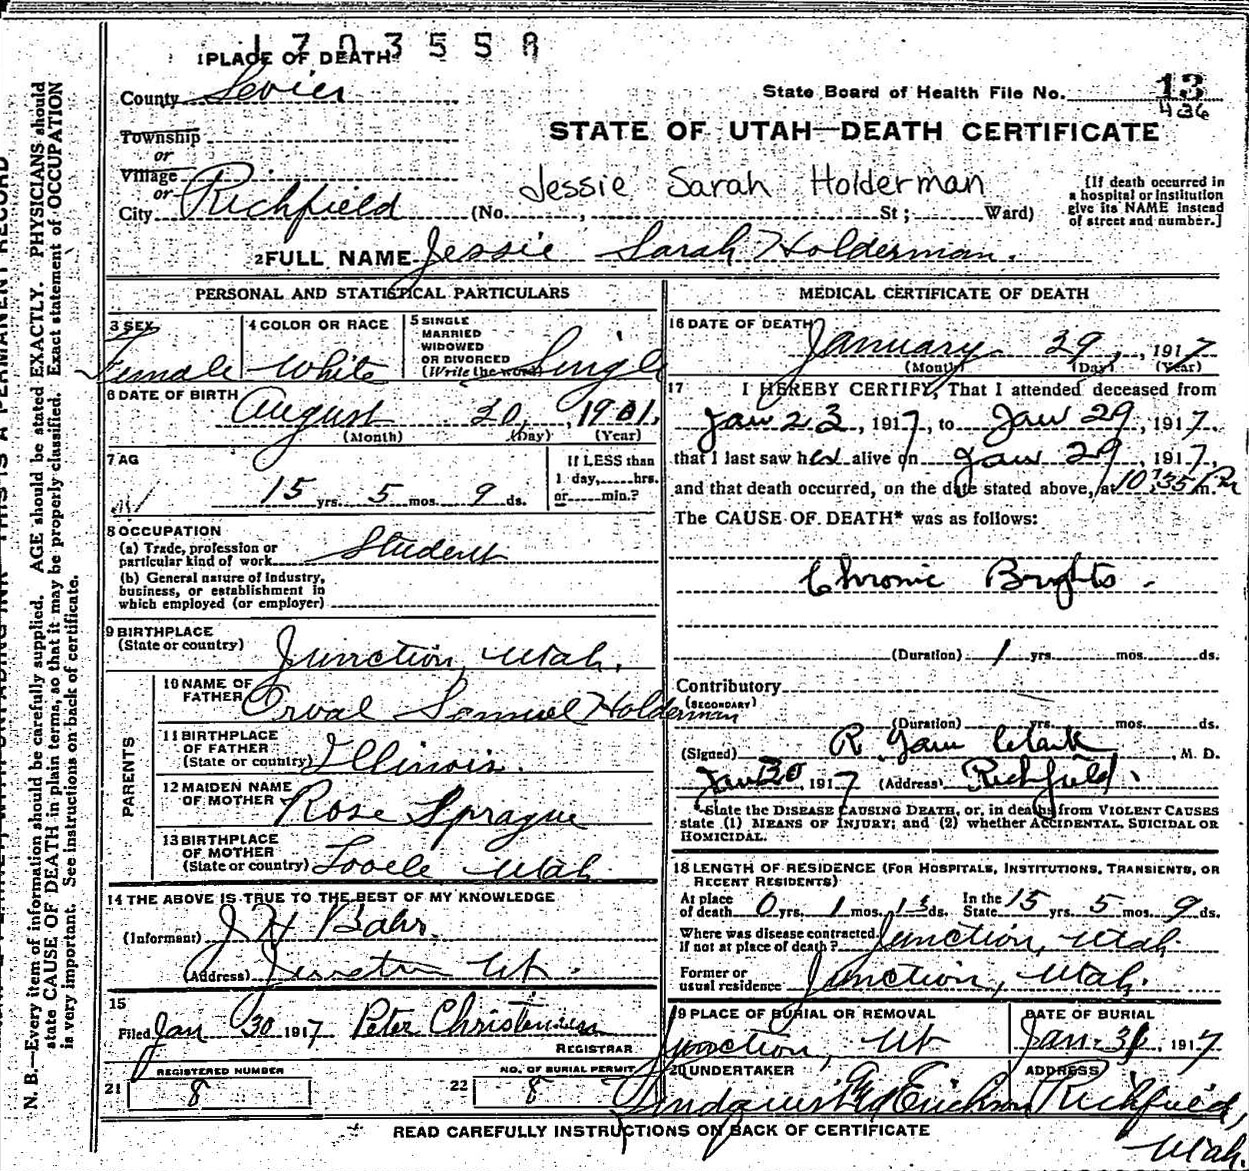 1703558
1 PLACE OF DEATH
County Sevier
State Board of Health File No. 13
436
Township
STATE OF UTAH—DEATH CERTIFICATE
or
Village
or
Jessie Sarah Holderman
[If death occurred in
a hospital or institution
give its NAME instead
of street and number.]
City Richfield (No. , St; Ward)
2 FULL NAME Jessie Sarah Holderman.
PERSONAL AND STATISTICAL PARTICULARS
3 SEX Female
4 COLOR OR RACE White
5 SINGLE
MARRIED
WIDOWED
OR DIVORCED
(Write the word) Single
6 DATE OF BIRTH August 20, 1901.
(Month) (Day) (Year)
7 AG
15 yrs. 5 mos. 9 ds.
If LESS than
1 day, hrs.
or min.?
8 OCCUPATION
(a) Trade, profession or
particular kind of work Student
(b) General nature of industry,
business, or establishment in
which employed (or employer)
9 BIRTHPLACE
(State or country) Junction, Utah.
PARENTS
10 NAME OF
FATHER Orval Samuel Holderman
11 BIRTHPLACE
OF FATHER
(State or country) Illinois.
12 MAIDEN NAME
OF MOTHER Rose Sprague
13 BIRTHPLACE
OF MOTHER
(State or country) Tooele Utah.
14 THE ABOVE IS TRUE TO THE BEST OF MY KNOWLEDGE
(Informant) J H Bahr.
(Address) Junction Ut.
15
Filed Jan 30 1917 Peter Christensen
REGISTRAR
REGISTERED NUMBER
21 8
NO. OF BURIAL PERMIT
22 8
MEDICAL CERTIFICATE OF DEATH
16 DATE OF DEATH
January 29, 1917
(Month) (Day) (Year)
17 I HEREBY CERTIFY, That I attended deceased from
Jan 23, 1917, to Jan 29, 1917.
that I last saw her alive on Jan 29, 1917,
and that death occurred, on the date stated above, at 10:35 P.m.
The CAUSE OF DEATH* was as follows:
Chronic Brights.
(Duration) 1 yrs. mos. ds.
Contributory
(SECONDARY)
(Duration) yrs. mos. ds.
(Signed) R Clark, M. D.
Jan 30, 1917 (Address) Richfield.
State the DISEASE CAUSING DEATH, or, in deaths from VIOLENT CAUSES
state (1) MEANS OF INJURY; and (2) whether ACCIDENTAL, SUICIDAL OR
HOMICIDAL.
18 LENGTH OF RESIDENCE (FOR HOSPITALS, INSTITUTIONS, TRANSIENTS, OR
RECENT RESIDENTS)
At place
of death 0 yrs. 1 mos. 13 ds. In the
State 15 yrs. 5 mos. 9 ds.
Where was disease contracted.
if not at place of death? Junction, Utah.
Former or
usual residence Junction, Utah.
19 PLACE OF BURIAL OR REMOVAL
Junction, Ut
DATE OF BURIAL
Jan. 31, 1917
20 UNDERTAKER
ADDRESS
Richfield,
Utah.
READ CAREFULLY INSTRUCTIONS ON BACK OF CERTIFICATE
N. B.—Every item of information should be carefully supplied. AGE should be stated EXACTLY. PHYSICIANS should
state CAUSE OF DEATH in plain terms, so that it may be properly classified. Exact statement of OCCUPATION
is very important. See instructions on back of certificate.